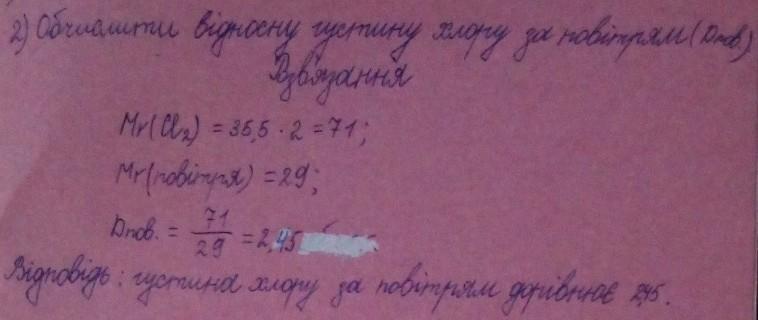 2) Обчислити відносну густину хлору за повітрям (Dпов.)
Розв'язання
Mr(Cl₂) = 35,5 · 2 = 71;
Mr(повітря) = 29;
Dпов. = 71/29 = 2,45
Відповідь: густина хлору за повітрям дорівнює 2,45.